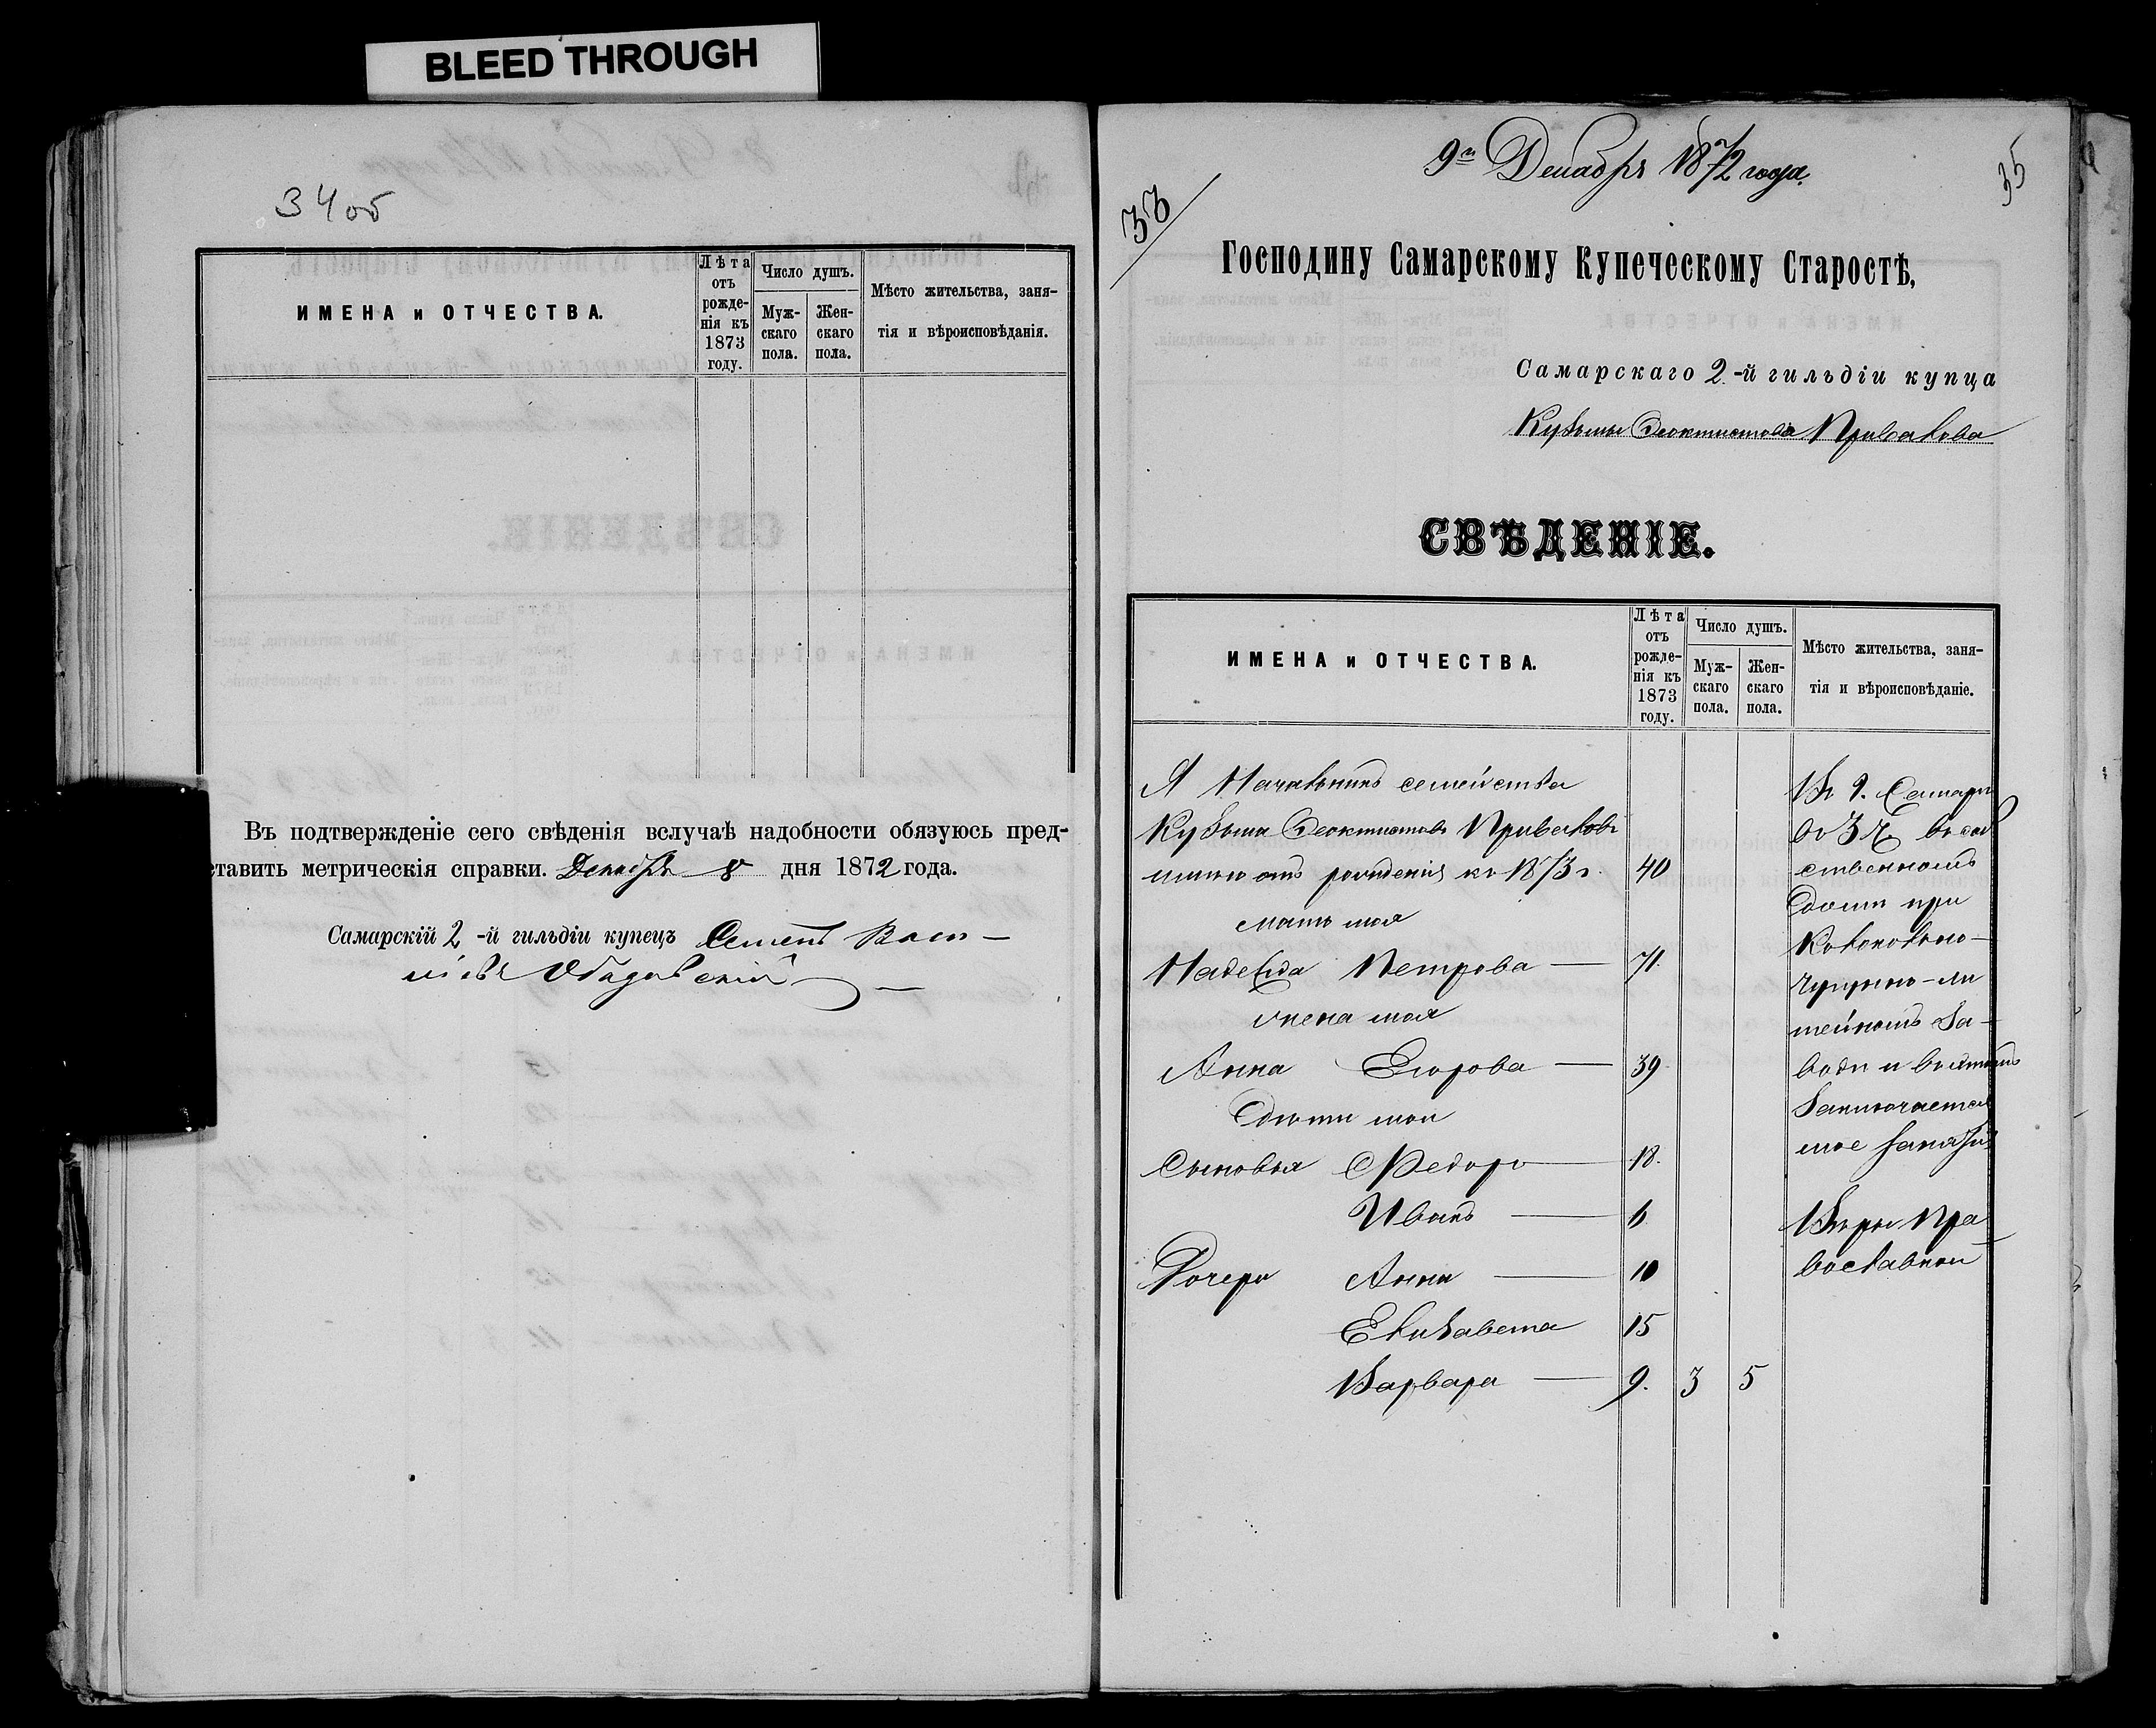 BLEED THROUGH
34об
ИМЕНА и ОТЧЕСТВА.
Лѣта отъ рожденія къ 1873 году.
Число душъ.
Мужскаго пола.
Женскаго пола.
Мѣсто жительства, заня-
тія и вѣроисповѣданія.
Въ подтвержденіе сего свѣденія вслучаѣ надобности обязуюсь пред-
ставить метрическія справки. Декабря 8 дня 1872 года.
Самарскій 2-й гильдіи купецъ Семенъ Васи-
9го Декабря 1872 года.
33
35
Господину Самарскому Купеческому Старостѣ,
Самарскаго 2.-й гильдіи купца
Кузьмы Феоктистова Привалова
СВѢДЕНІЕ.
ИМЕНА и ОТЧЕСТВА.
Лѣта отъ рожденія къ 1873 году.
Число душъ.
Мужскаго пола.
Женскаго пола.
Мѣсто жительства, заня-
тія и вѣроисповѣданіе.
Я Начальникъ семейства
Кузьма Феоктистовъ Приваловъ
отъ рожденія къ 1873 г. 40
мать моя
Надежда Петрова — 71.
жена моя
Анна Егорова — 39
дѣти мои
Сыновья Федоръ — 18.
Иванъ — 6
Дочери Анна — 10
Елизавета 15
Варвара — 9. 3 5
Въ г. Самарѣ
во 3 ч. въ соб
ственномъ
домѣ при
Колокольно-
чугунно-ли
тейномъ за-
водѣ и въ этомъ
заключается
мое занятіе
Вѣры Пра
вославной